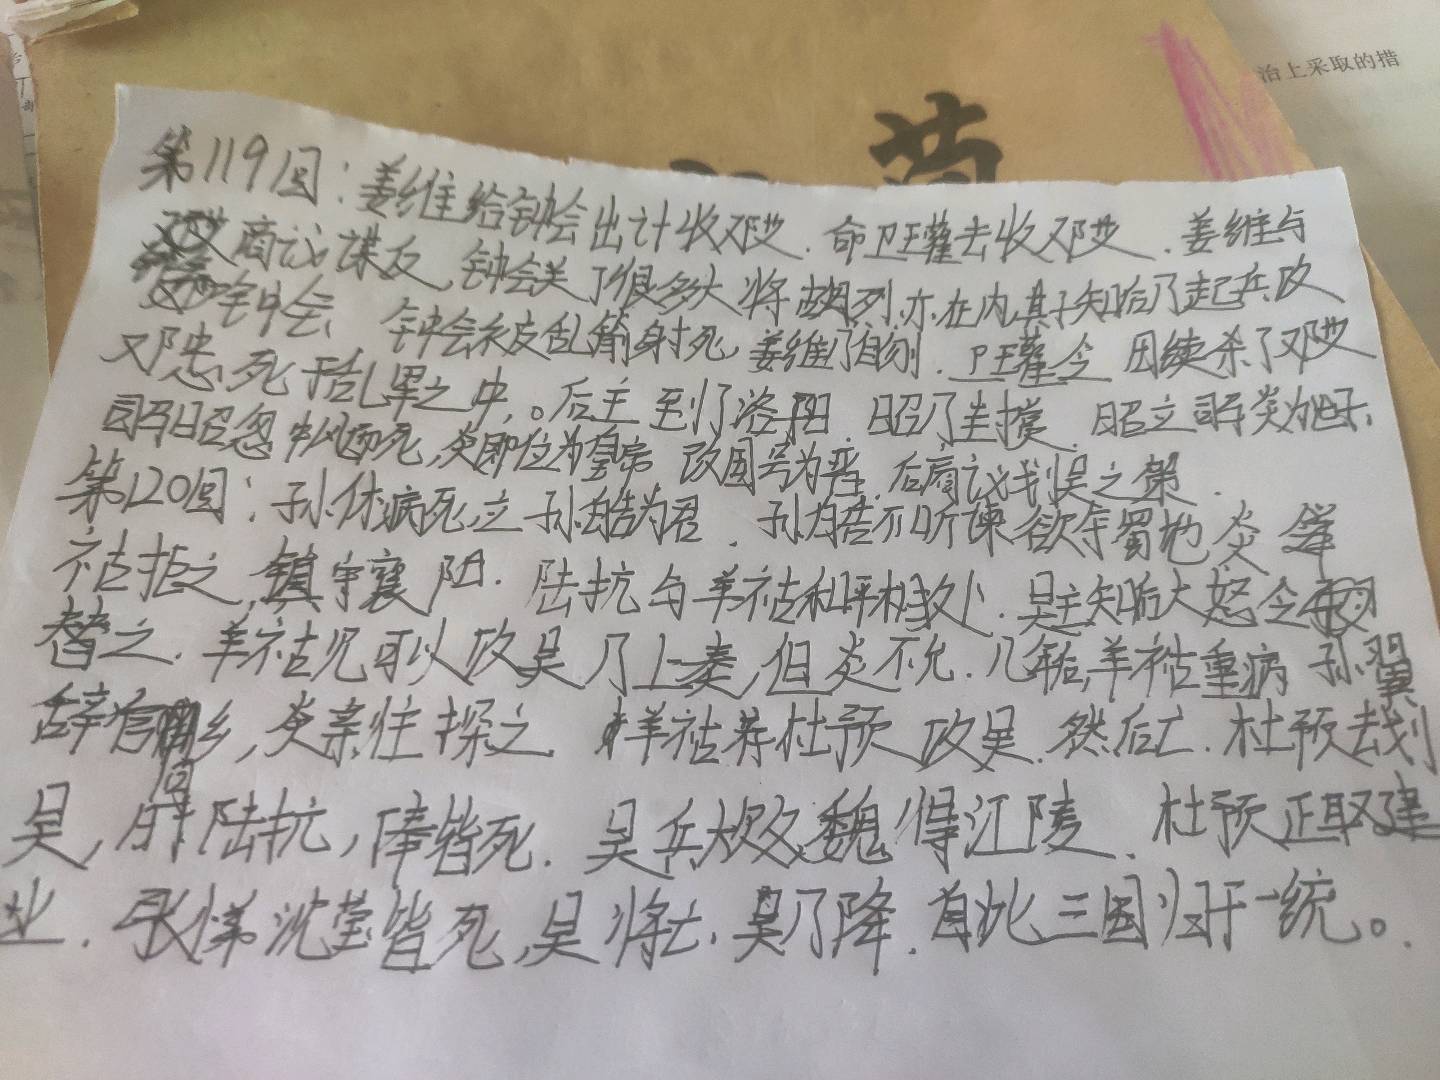 治上采取的措
第119回：姜维给钟会出计收邓艾．命卫瓘去收邓艾．姜维与
商议谋反，钟会关了很多大将胡烈亦在内，其子知后乃起兵攻
钟会、钟会被乱箭射死，姜维乃自刎．卫瓘令田续杀了邓艾
邓忠死于乱军之中，。后主到了洛阳．昭乃封．昭立司马炎为世子，
司马昭忽中风而死，炎即位为皇帝 改国号为晋．后商议伐吴之策．
第120回：孙休病死，立孙皓为君．孙皓不听谏欲夺蜀地 炎 
祜拒之，镇守襄阳．陆抗与羊祜和平相处．吴主知后大怒 令
替之．羊祜见可以攻吴乃上奏，但炎不允．几年后，羊祜重病 孙冀
辞官回乡，炎亲往探之 羊祜荐杜预攻吴．然后亡．杜预去伐
吴，陆抗，皆死．吴兵大败，魏得江陵．杜预正取建
业．张悌沈莹皆死，吴将亡．吴乃降．自此三国归于一统。．